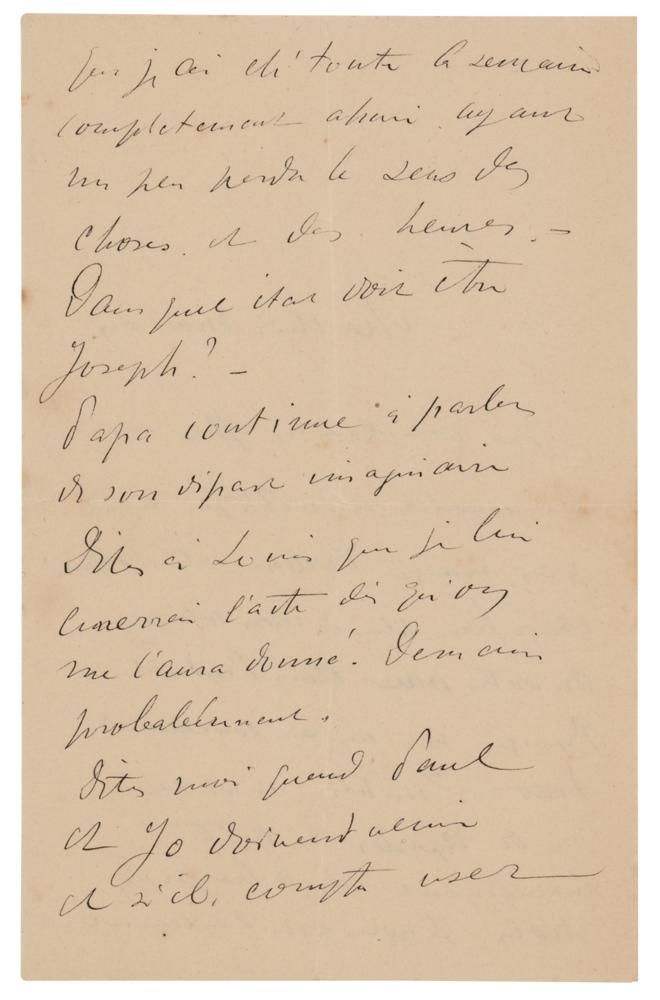 que j'ai été toute la semaine
complètement ahuri ayant
un peu perdu le sens des
choses et des heures. —
Dans quel état doit être
Joseph? —
Papa continue à parler
de son départ imaginaire
Dites à Louis que je lui
enverrai l'acte dès qu'on
me l'aura donné. Demain
probablement.
Dites moi quand Paul
et Jo doivent venir
et s'ils comptent user